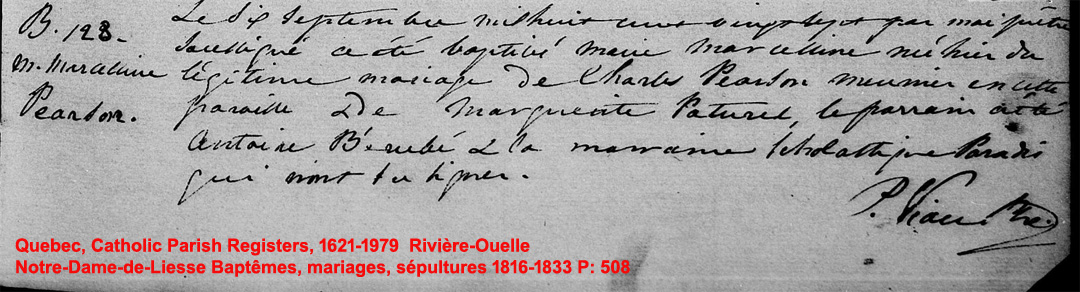 B. 128.
M. Marcelline
Pearson.
Le dix septembre mil huit cent vingt sept par moi prêtre
soussigné a été baptisé Marie Marcelline né hier du
légitime mariage de Charles Pearson meunier en cette
paroisse & de Marguerite Paturel, le parrain a été
Antoine Bérubé & la marraine Scholastique Paradis
qui n'ont su signer.
P. Viau Ptre.
Quebec, Catholic Parish Registers, 1621-1979 Rivière-Ouelle
Notre-Dame-de-Liesse Baptêmes, mariages, sépultures 1816-1833 P: 508